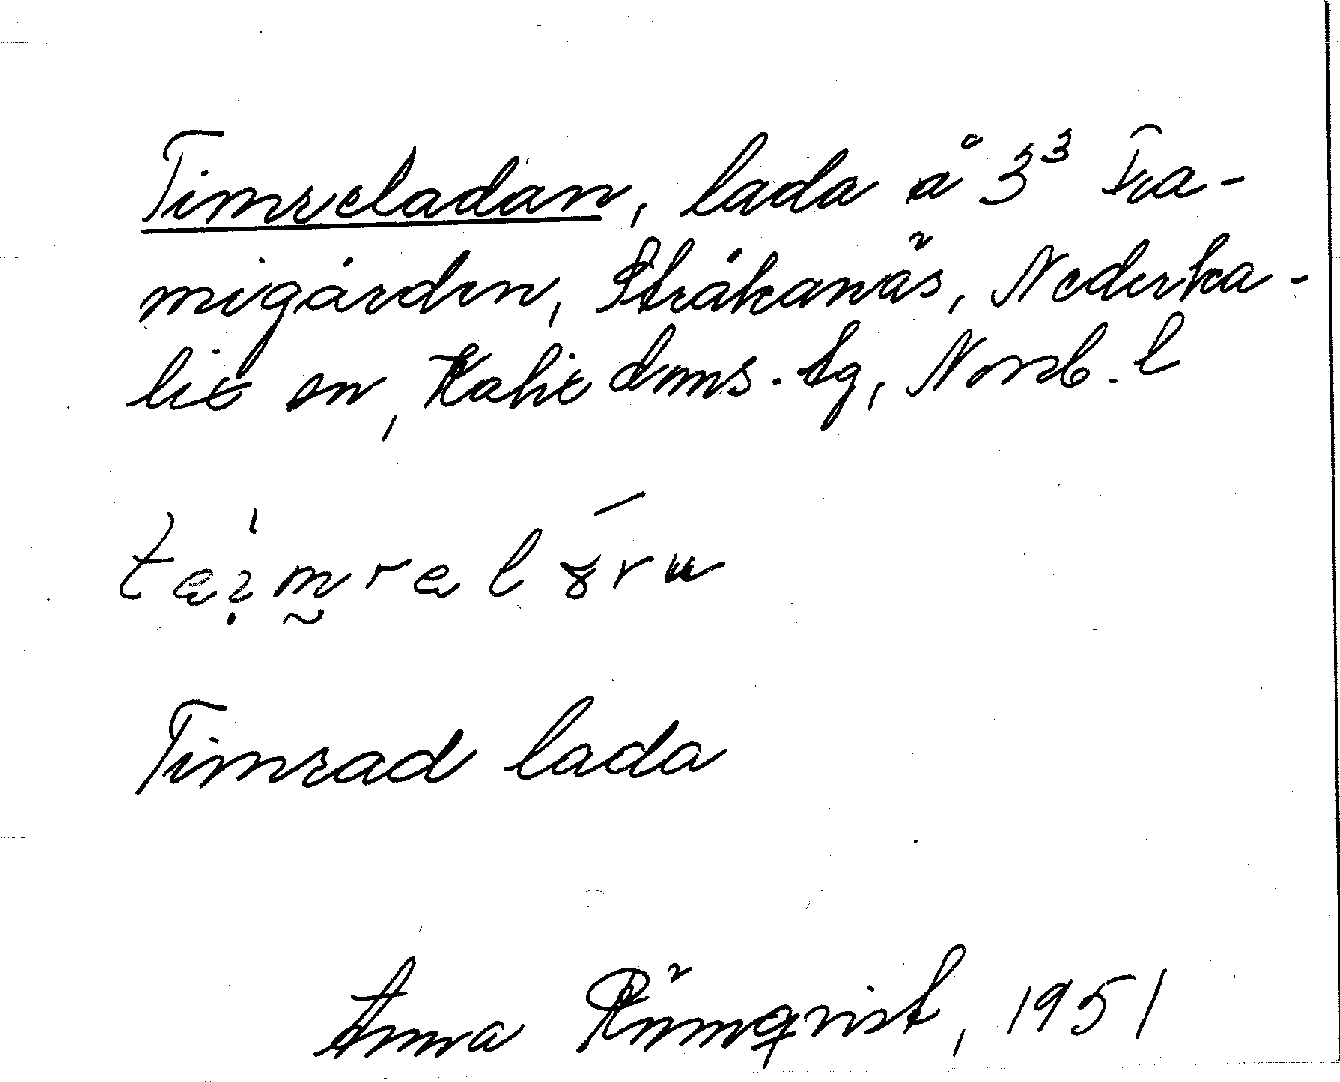 Timreladan, lada å 3³ Fra-
migården, Stråkanäs, Nederka-
lix sn, Kalix dms. tg, Norrb. l
Timrad lada
Anna Römqvist, 1951